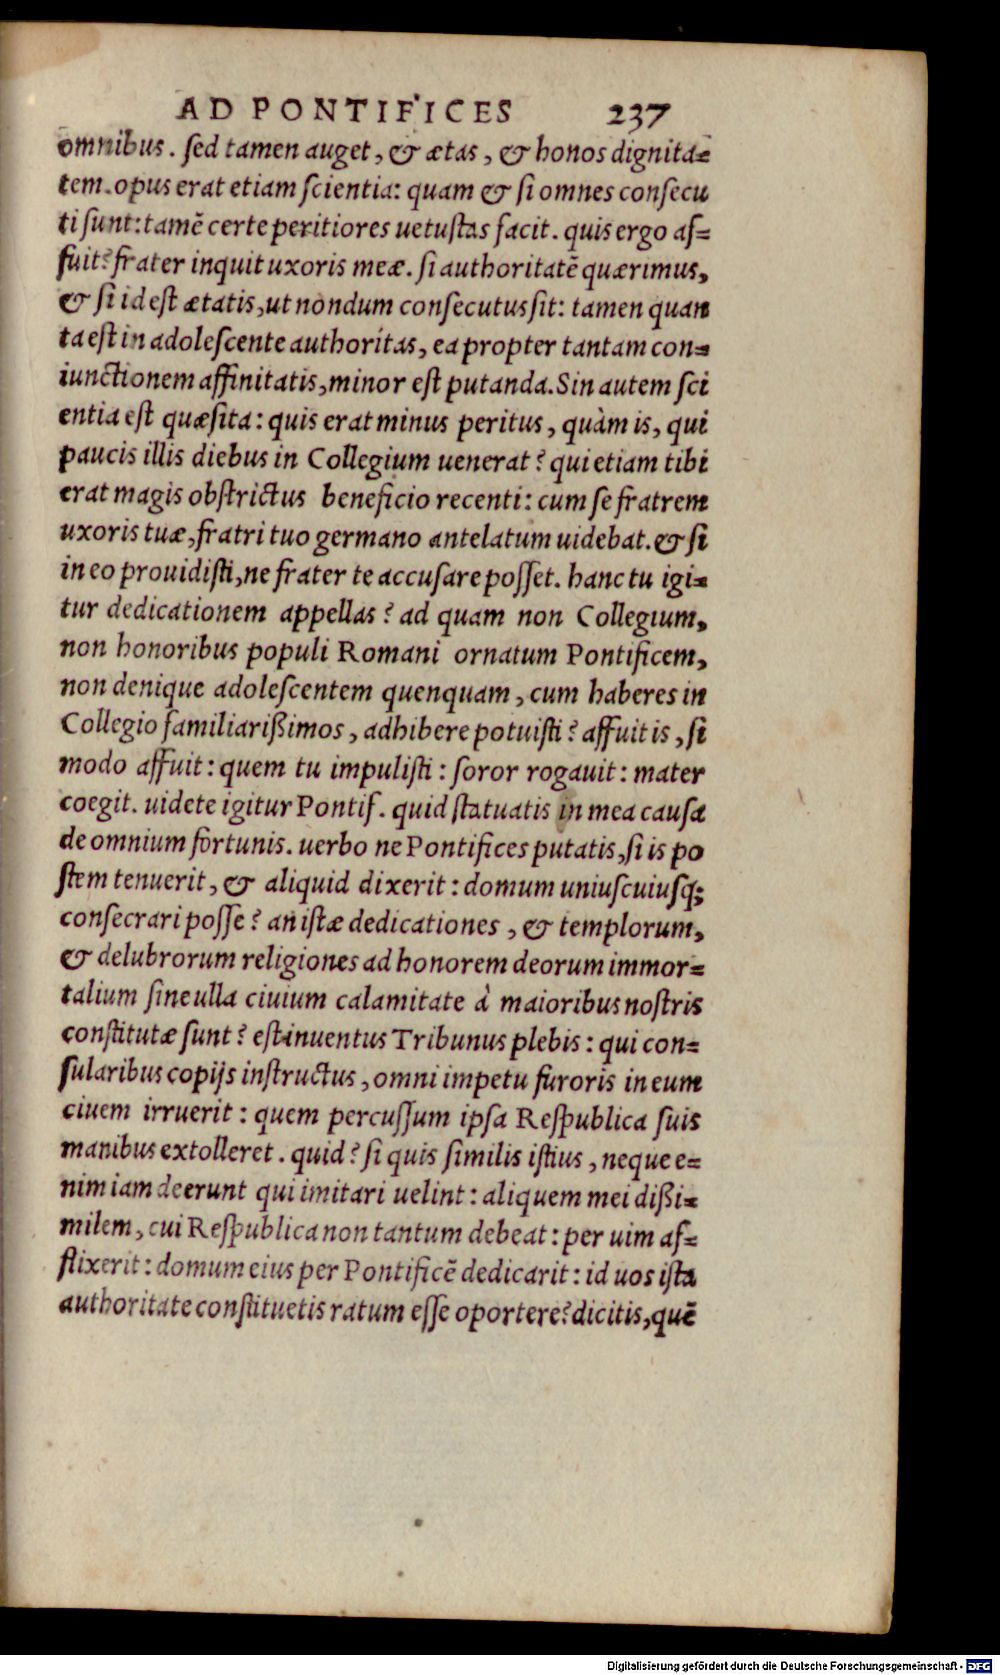 AD PONTIFICES 237
omnibus. ſed tamen auget, & ætas, & honos dignita=
tem. opus erat etiam ſcientia: quam & ſi omnes conſecu
ti ſunt: tamē certe peritiores uetuſtas facit. quis ergo af=
fuit? frater inquit uxoris meæ. ſi authoritatē quærimus,
& ſi id eſt ætatis, ut nondum conſecutus ſit: tamen quan
ta eſt in adoleſcente authorítas, ea propter tantam con=
iunctionem affinitatis, minor eſt putanda. Sin autem ſci
entia eſt quæſita: quis erat minus peritus, quàm is, qui
paucis illis diebus in Collegium uenerat? qui etiam tibi
erat magis obſtrictus beneficio recenti: cum ſe fratrem
uxoris tuæ, fratri tuo germano antelatum uidebat. & ſi
in eo prouidiſti, ne frater te accuſare poſſet. hanc tu igi=
tur dedicationem appellas? ad quam non Collegium,
non honoribus populi Romani ornatum Pontificem,
non denique adoleſcentem quenquam, cum haberes in
Collegio familiarißimos, adhibere potuiſti? affuit is, ſi
modo affuit: quem tu impuliſti: ſoror rogauit: mater
coegit. uidete igitur Pontif. quid ſtatuatis in mea cauſa
de omnium fortunis. uerbo ne Pontifices putatis, ſi is po
ſtem tenuerit, & aliquid dixerit: domum uniuſcuiuſq;
conſecrari poſſe? an iſtæ dedicationes, & templorum,
& delubrorum religiones ad honorem deorum immor=
talium ſine ulla ciuium calamitate à maioribus noſtris
conſtitutæ ſunt? eſt inuentus Tribunus plebis: qui con=
ſularibus copijs inſtructus, omni impetu furoris in eum
ciuem irruerit: quem percuſſum ipſa Reſpublica ſuis
manibus extolleret. quid? ſi quis ſimilis iſtius, neque e=
nim iam deerunt qui imitari uelint: aliquem mei dißi=
milem, cui Reſpublica non tantum debeat: per uim af=
flixerit: domum eius per Pontificē dedicarit: id uos iſta
authoritate conſtituetis ratum eſſe oportere? dicitis, quē
Digitalisierung gefördert durch die Deutsche Forschungsgemeinschaft - DFG